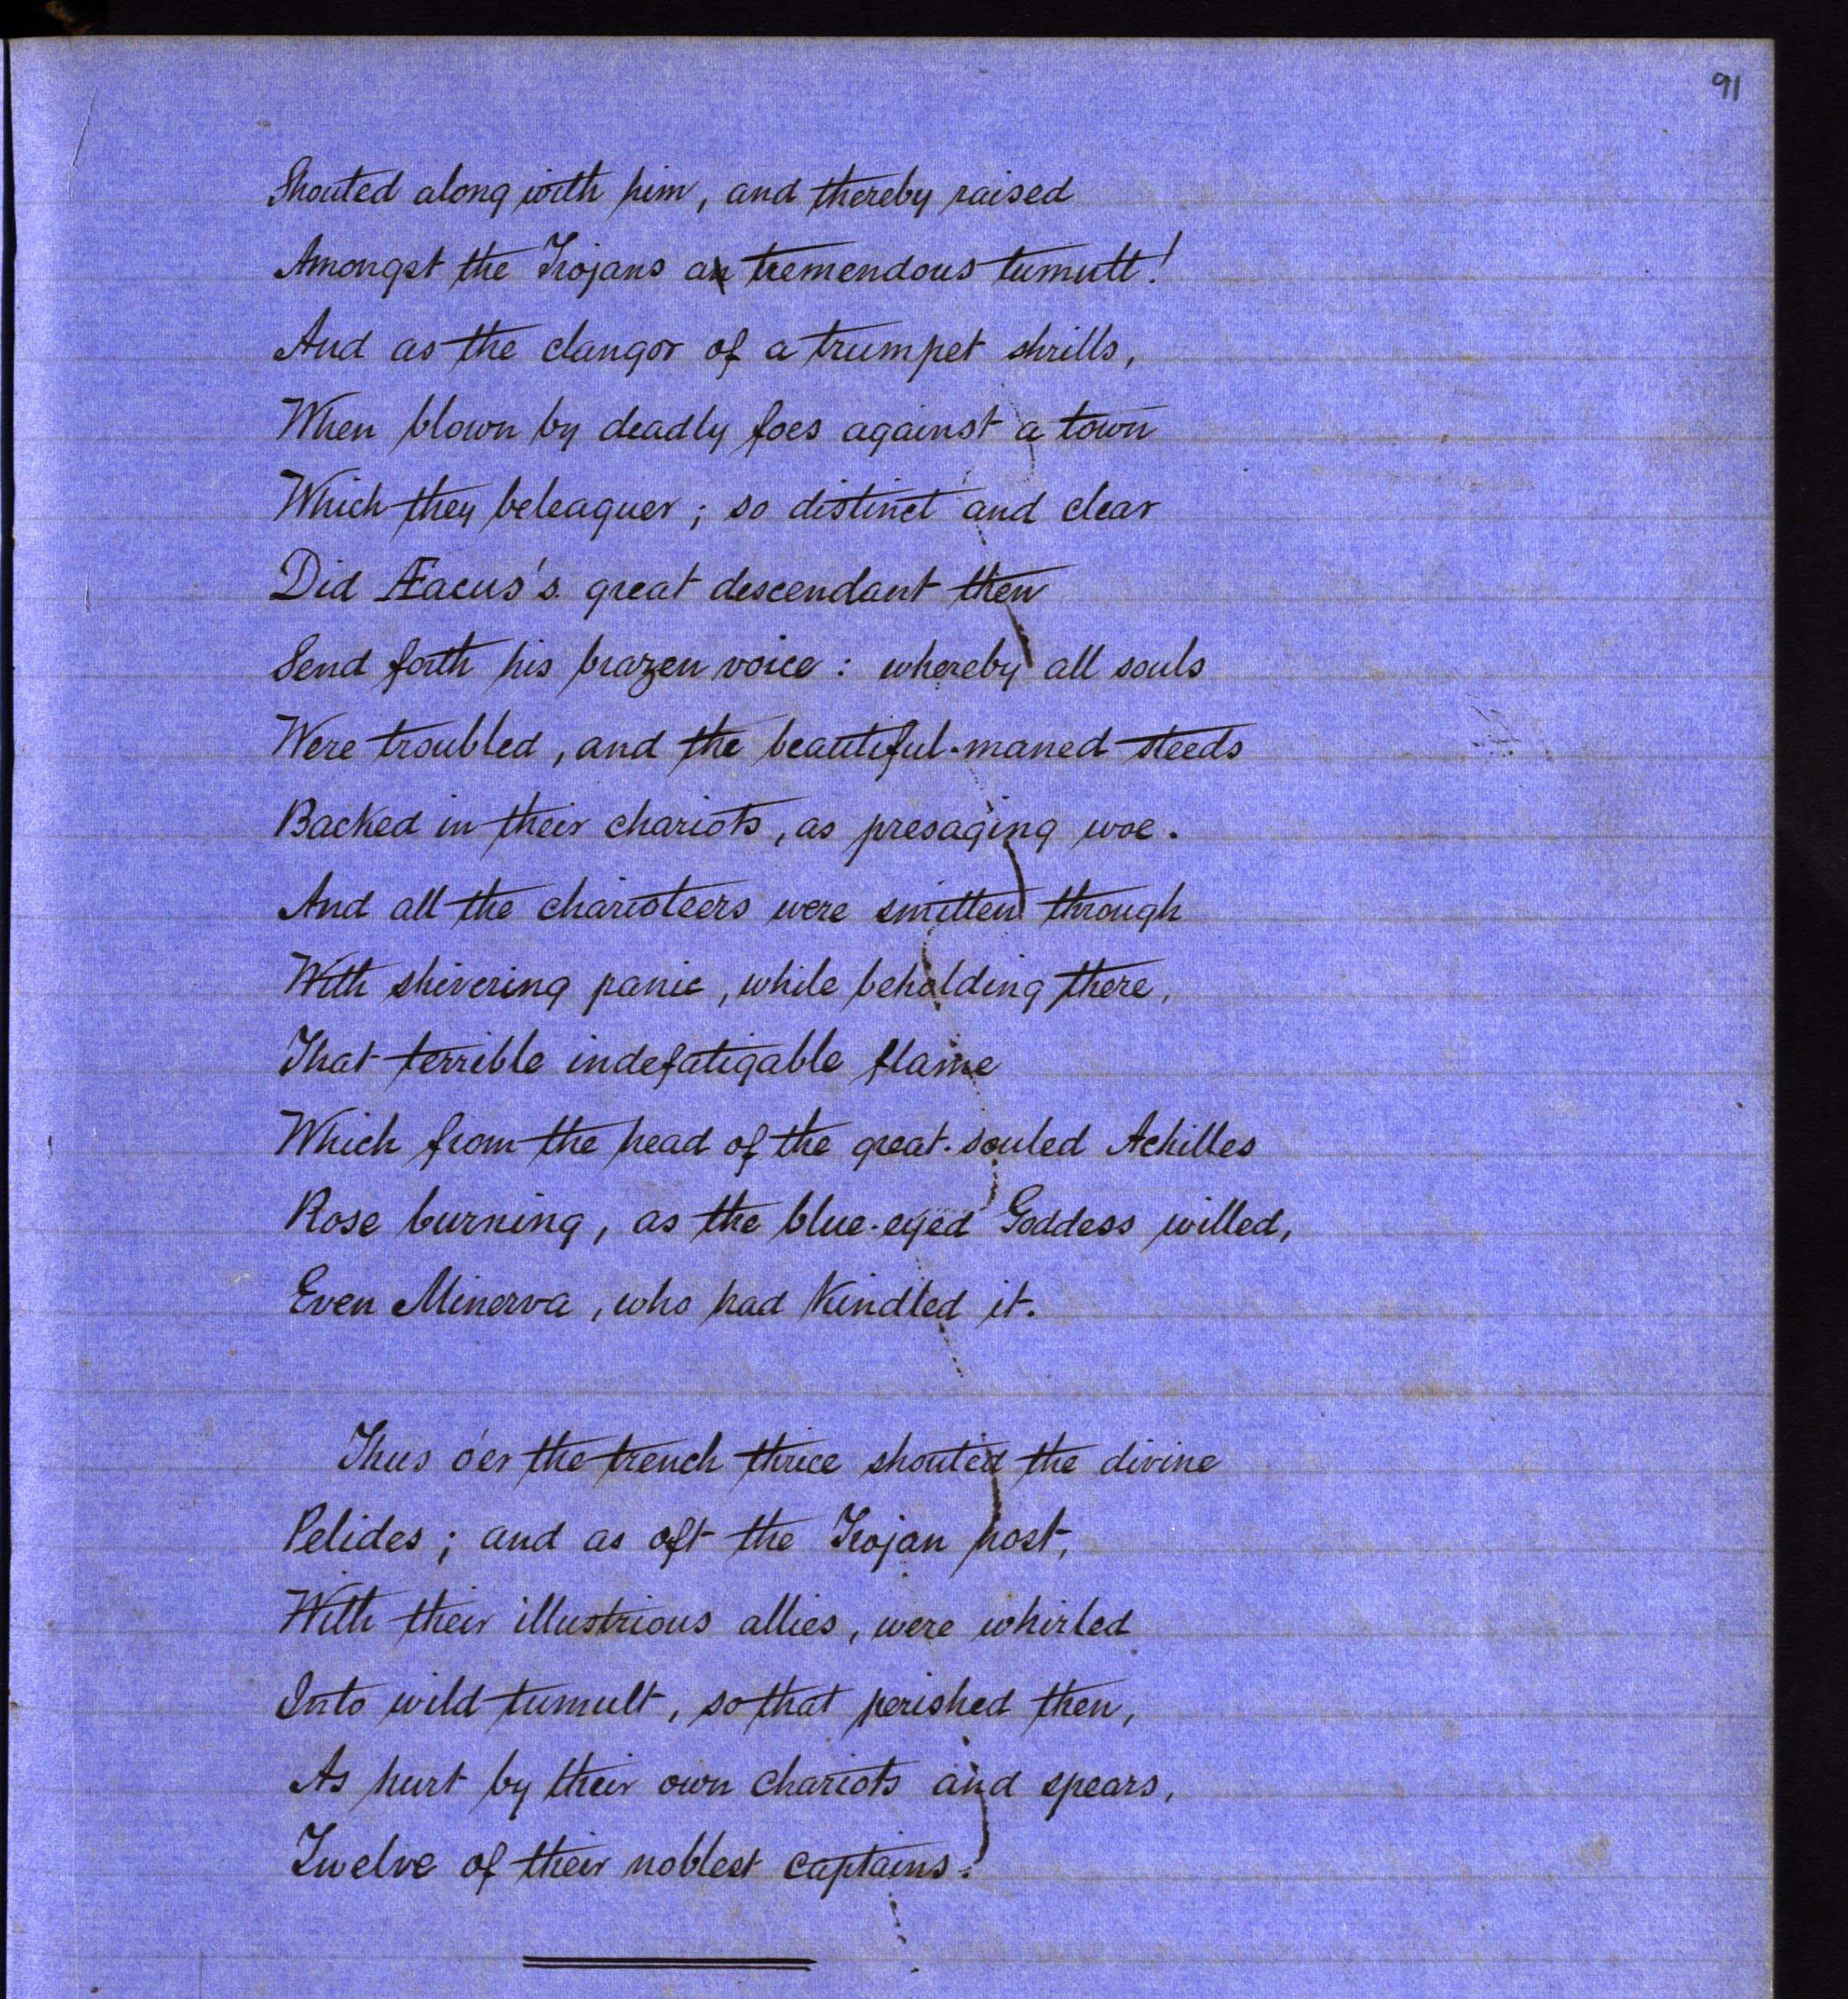 91
Shouted along with him, and thereby raised
Amongst the Trojans a tremendous tumult!
And as the clangor of a trumpet shrills,
When blown by deadly foes against a town
Which they beleaguer; so distinct and clear
Did Æacus's great descendant then
Send forth his brazen voice: whereby all souls
Were troubled, and the beautiful-maned steeds
Backed in their chariots, as presaging woe.
And all the charioteers were smitten through
With shivering panic, while beholding there,
That terrible indefatigable flame
Which from the head of the great-souled Achilles
Rose burning, as the blue-eyed Goddess willed,
Even Minerva, who had kindled it.
Thus o'er the trench thrice shouted the divine
Pelides; and as oft the Trojan host,
With their illustrious allies, were whirled
Into wild tumult, so that perished then,
As hurt by their own chariots and spears,
Twelve of their noblest captains.